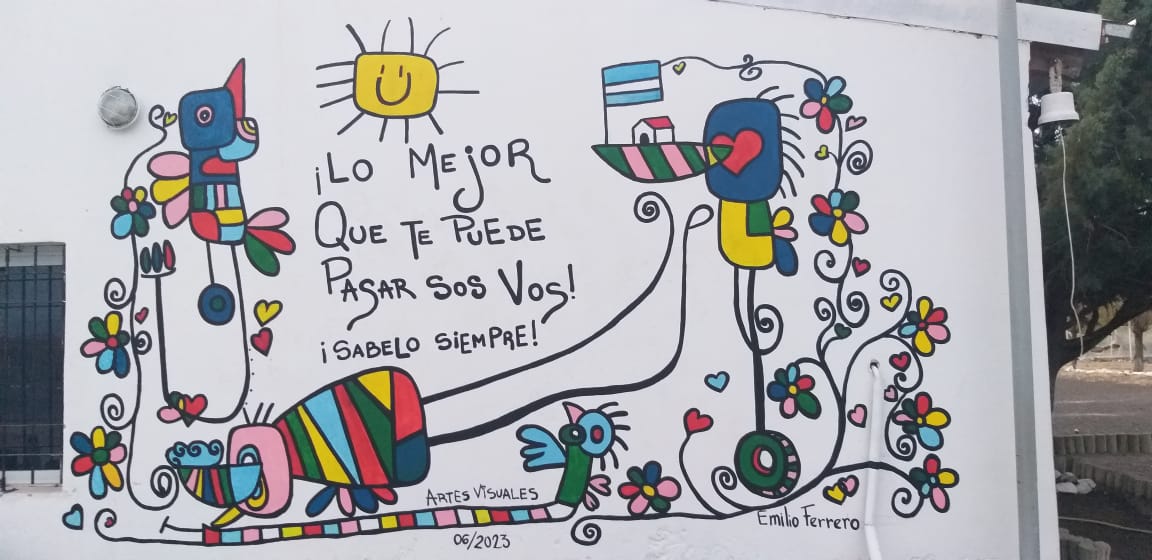 ¡LO MEJOR
QUE TE PUEDE
PASAR SOS VOS!
¡SABELO SIEMPRE!
ARTES VISUALES
06/2023
Emilio Ferrero